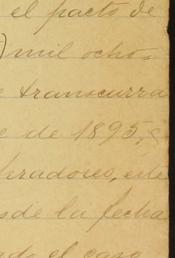 el pacto de
) mil ochos
transcurra
de 1895, 
bradores, este
sde la fecha
ado el caso